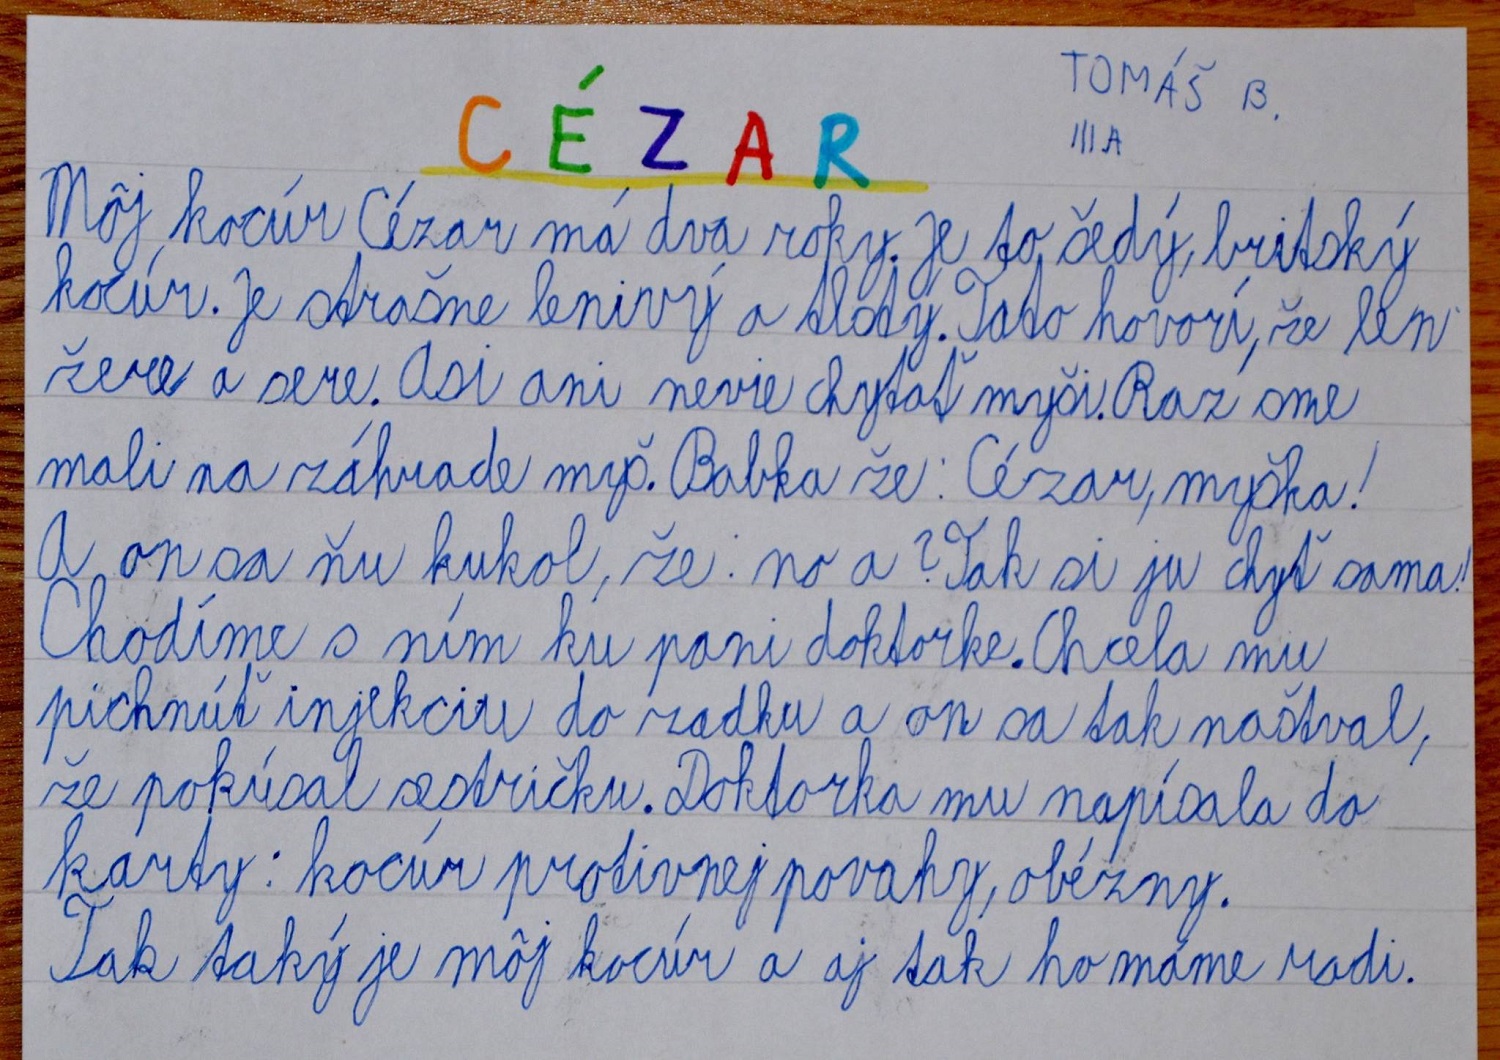 CÉZAR
TOMÁŠ B.
III A
Môj kocúr Cézar má dva roky. Je to šedý, britský
kocúr. Je strašne lenivý a tlstý. Tato hovorí, že len
žere a sere. Asi ani nevie chytať myši. Raz sme
mali na záhrade myš. Babka že: Cézar, myška!
A on sa ňu kukol, že: no a? Tak si ju chyť sama!
Chodíme s ním ku pani doktorke. Chcela mu
pichnúť injekciu do zadku a on sa tak naštval,
že pokúsal sestričku. Doktorka mu napísala do
karty: kocúr protivnej povahy, obézny.
Tak taký je môj kocúr a aj tak ho máme radi.